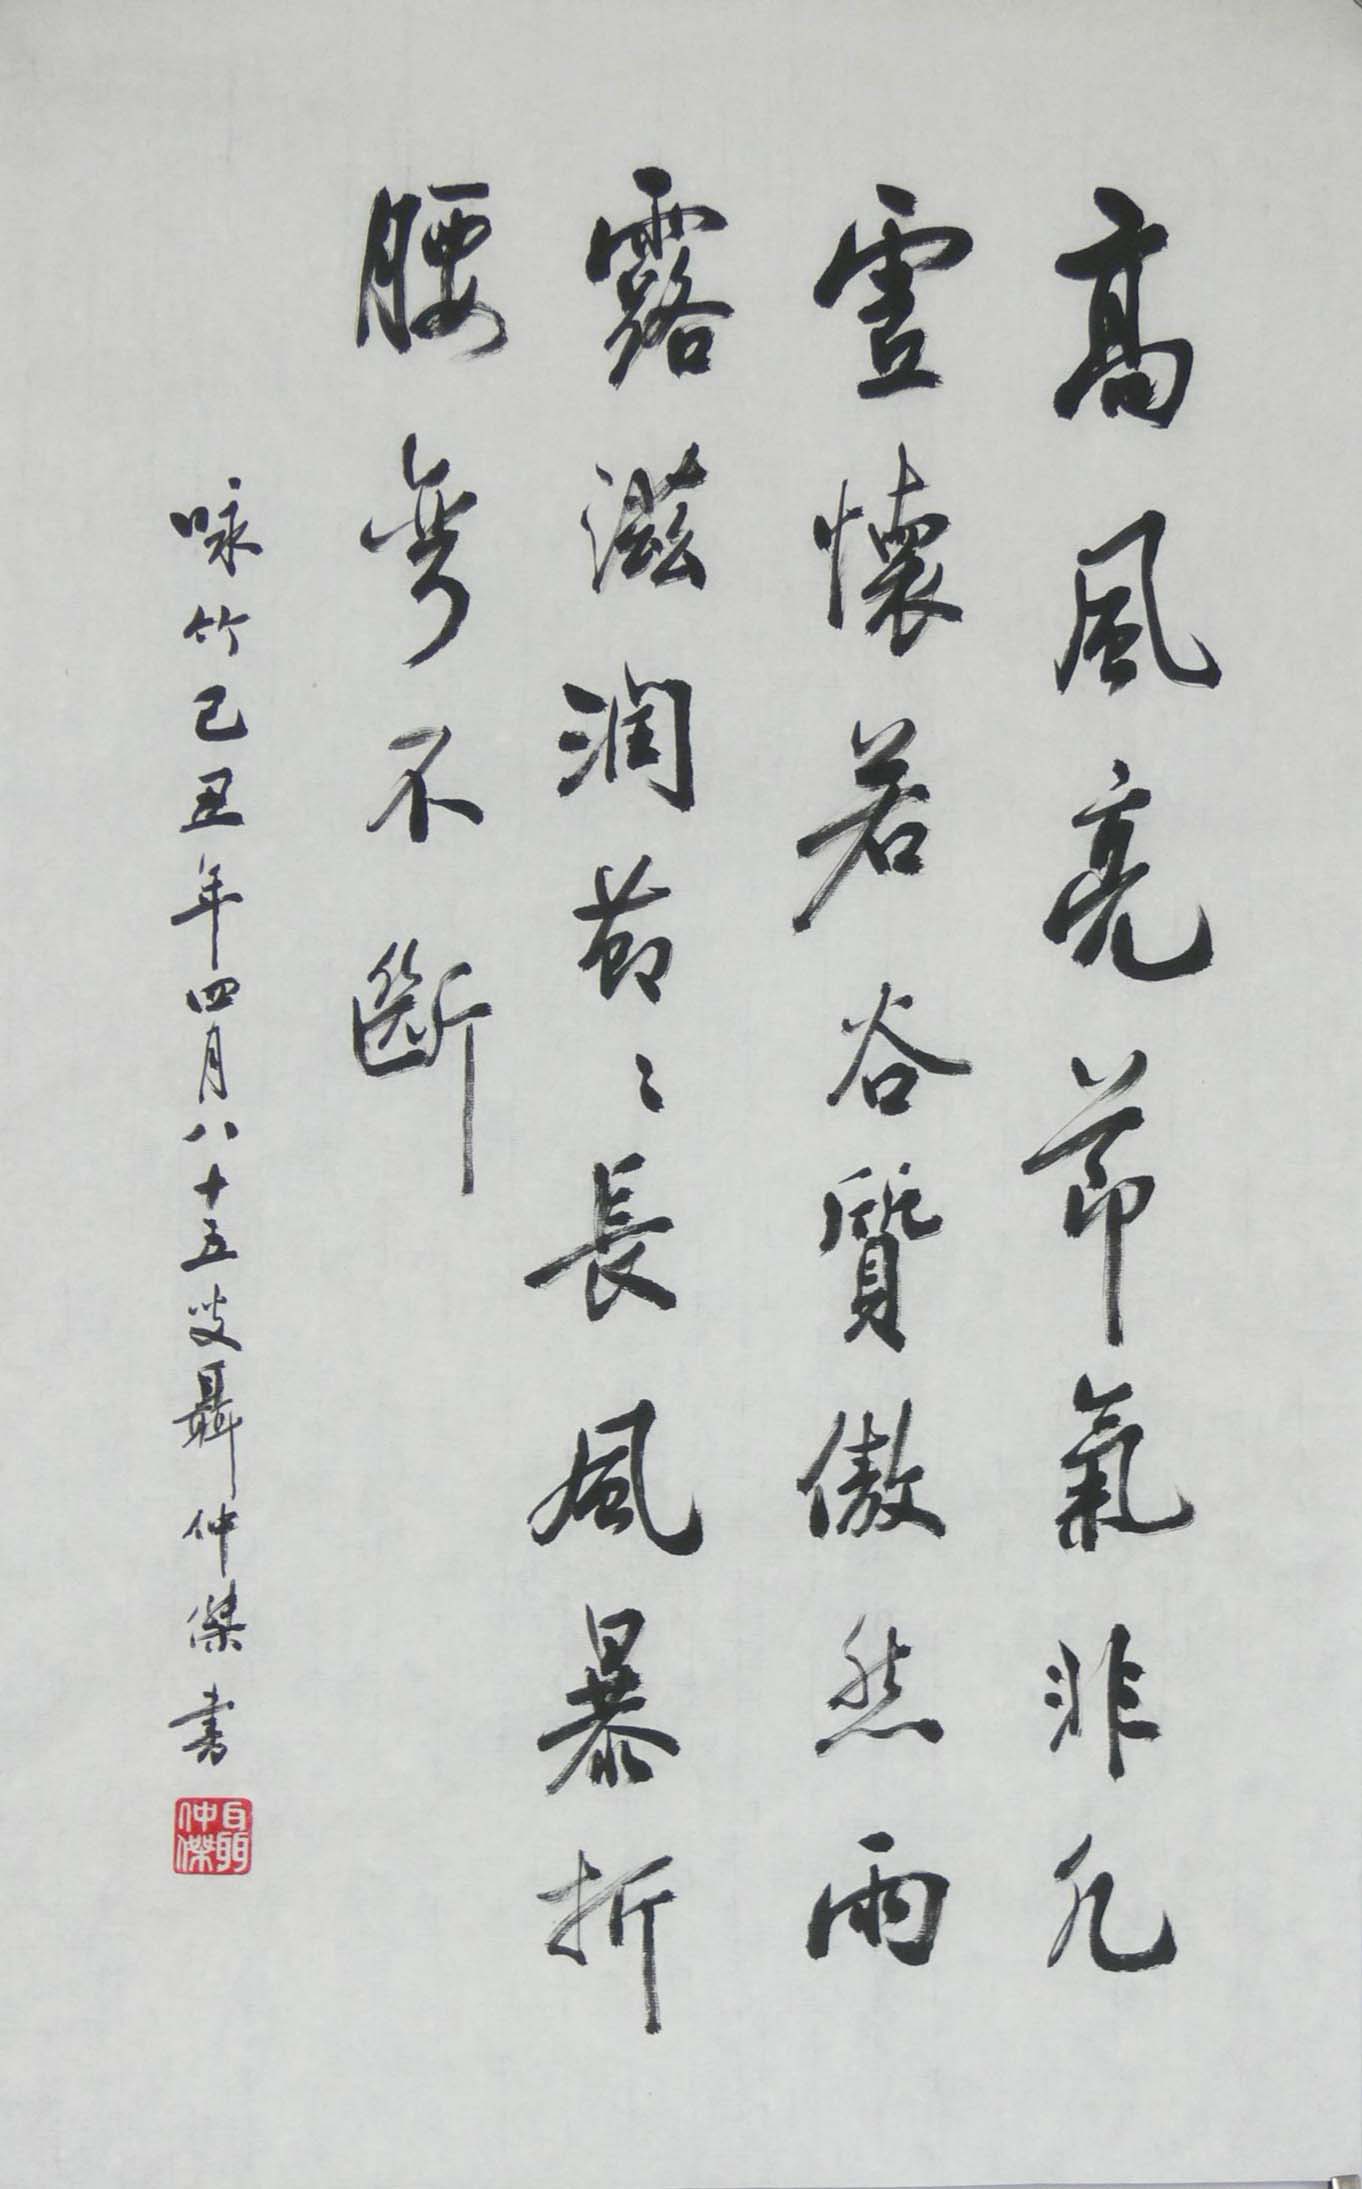 高風亮節氣非凡
虛懷若谷質傲然雨
露滋潤節〻長風暴折
腰彎不斷
咏竹己丑年四月八十五叟聶仲傑書
聶仲傑